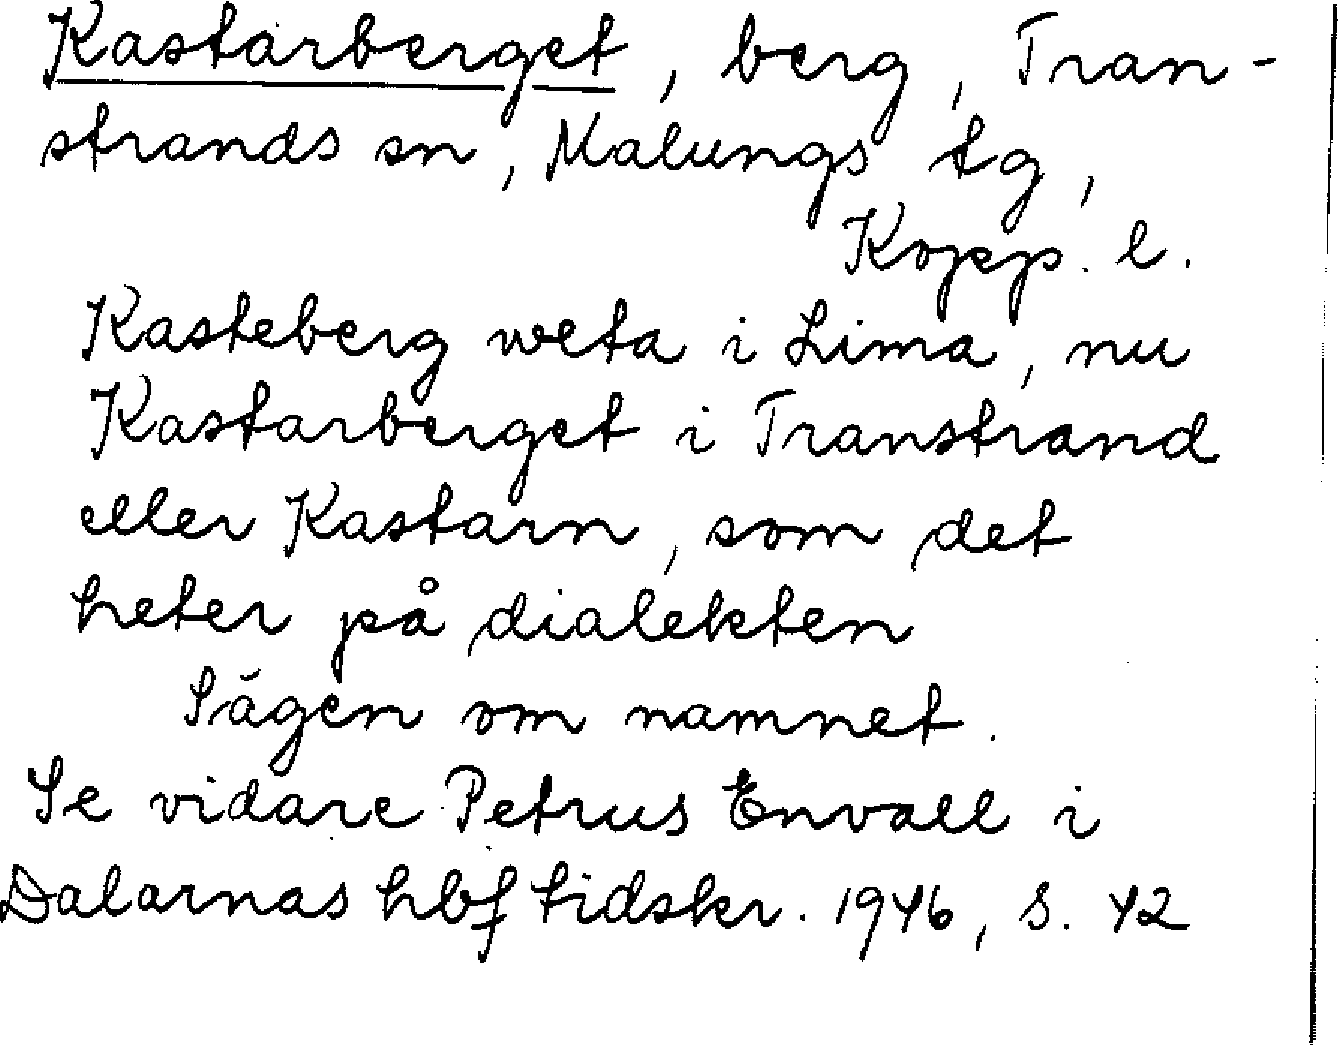 Kastarberget, berg, Tran-
strands sn, Malungs tg,
Kopp. l.
Kasteberg weta i Lima, nu
Kastarberget i Transtrand
eller Kastarn, som det
heter på dialekten
Sägen om namnet.
Se vidare Petrus Envall i
Dalarnas hbf tidskr. 1946, s. 42